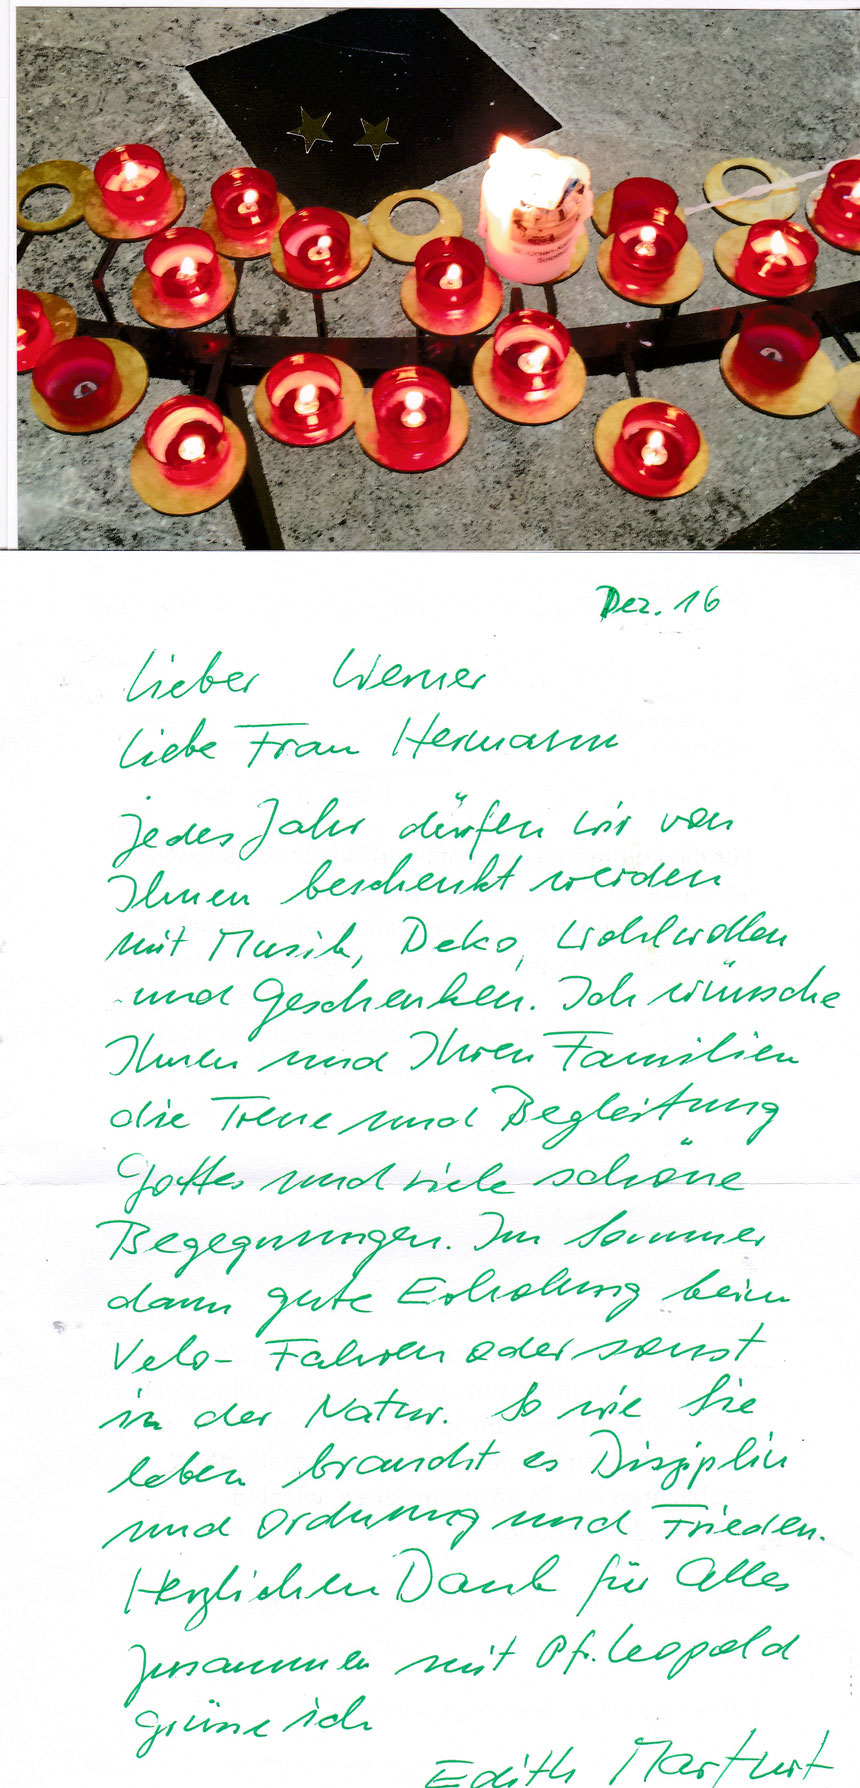 Dez. 16
Lieber Werner
Liebe Frau Hermann
jedes Jahr dürfen wir von
Ihnen beschenkt werden
mit Musik, Deko, Wohlwollen
und Geschenken. Ich wünsche
Ihnen und Ihren Familien
die Treue und Begleitung
Gottes und viele schöne
Begegnungen. Im Sommer
dann gute Erholung beim
Velo-Fahren oder sonst
in der Natur. So wie Sie
leben braucht es Disziplin
und Ordnung und Frieden.
Herzlichen Dank für Alles
zusammen mit Pfr. Leopold
grüsse ich
Edith Marfurt